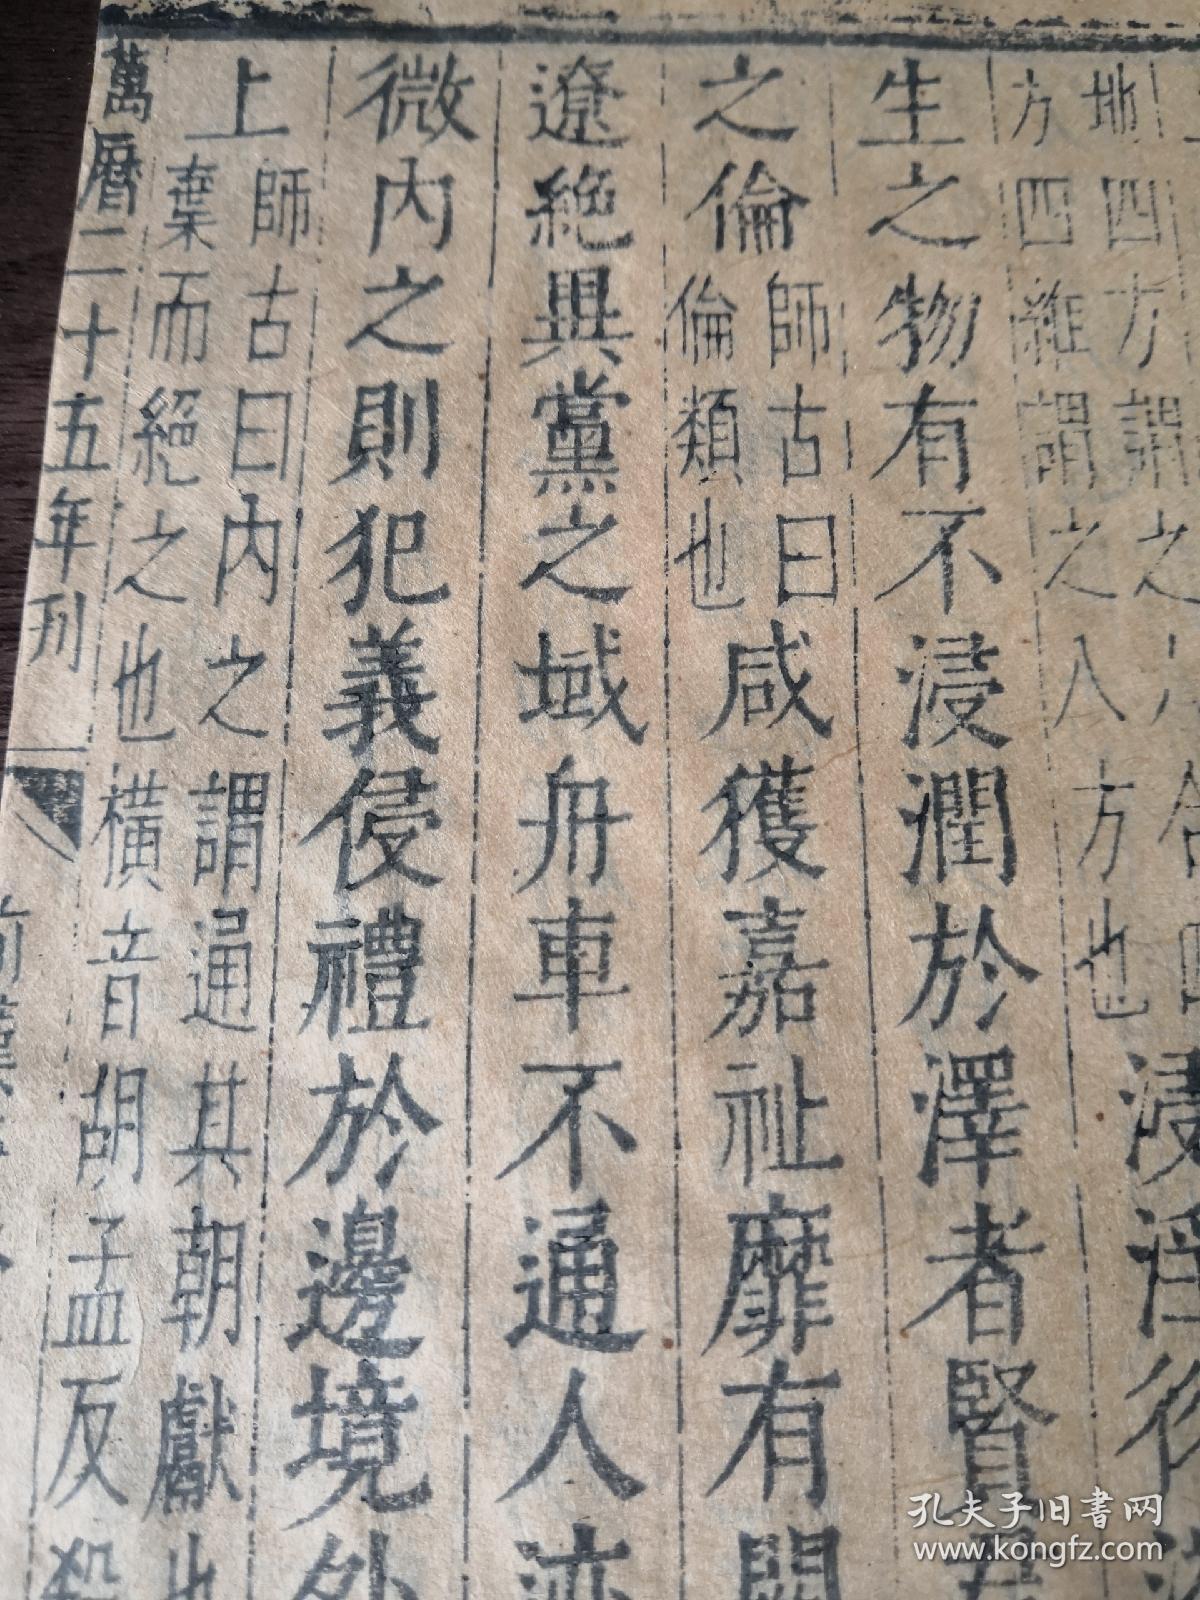 地四方謂之六合四
方四維謂之八方也
浸淫
生之物有不浸潤於澤者賢君
之倫
師古曰
倫類也
咸獲嘉祉靡有闕
遼絕異黨之域舟車不通人迹
微內之則犯義侵禮於邊境外
上
師古曰內之謂通其朝獻也
棄而絕之也橫音胡孟反殺
萬曆二十五年刊
前漢書
孔夫子旧书网
www.kongfz.com